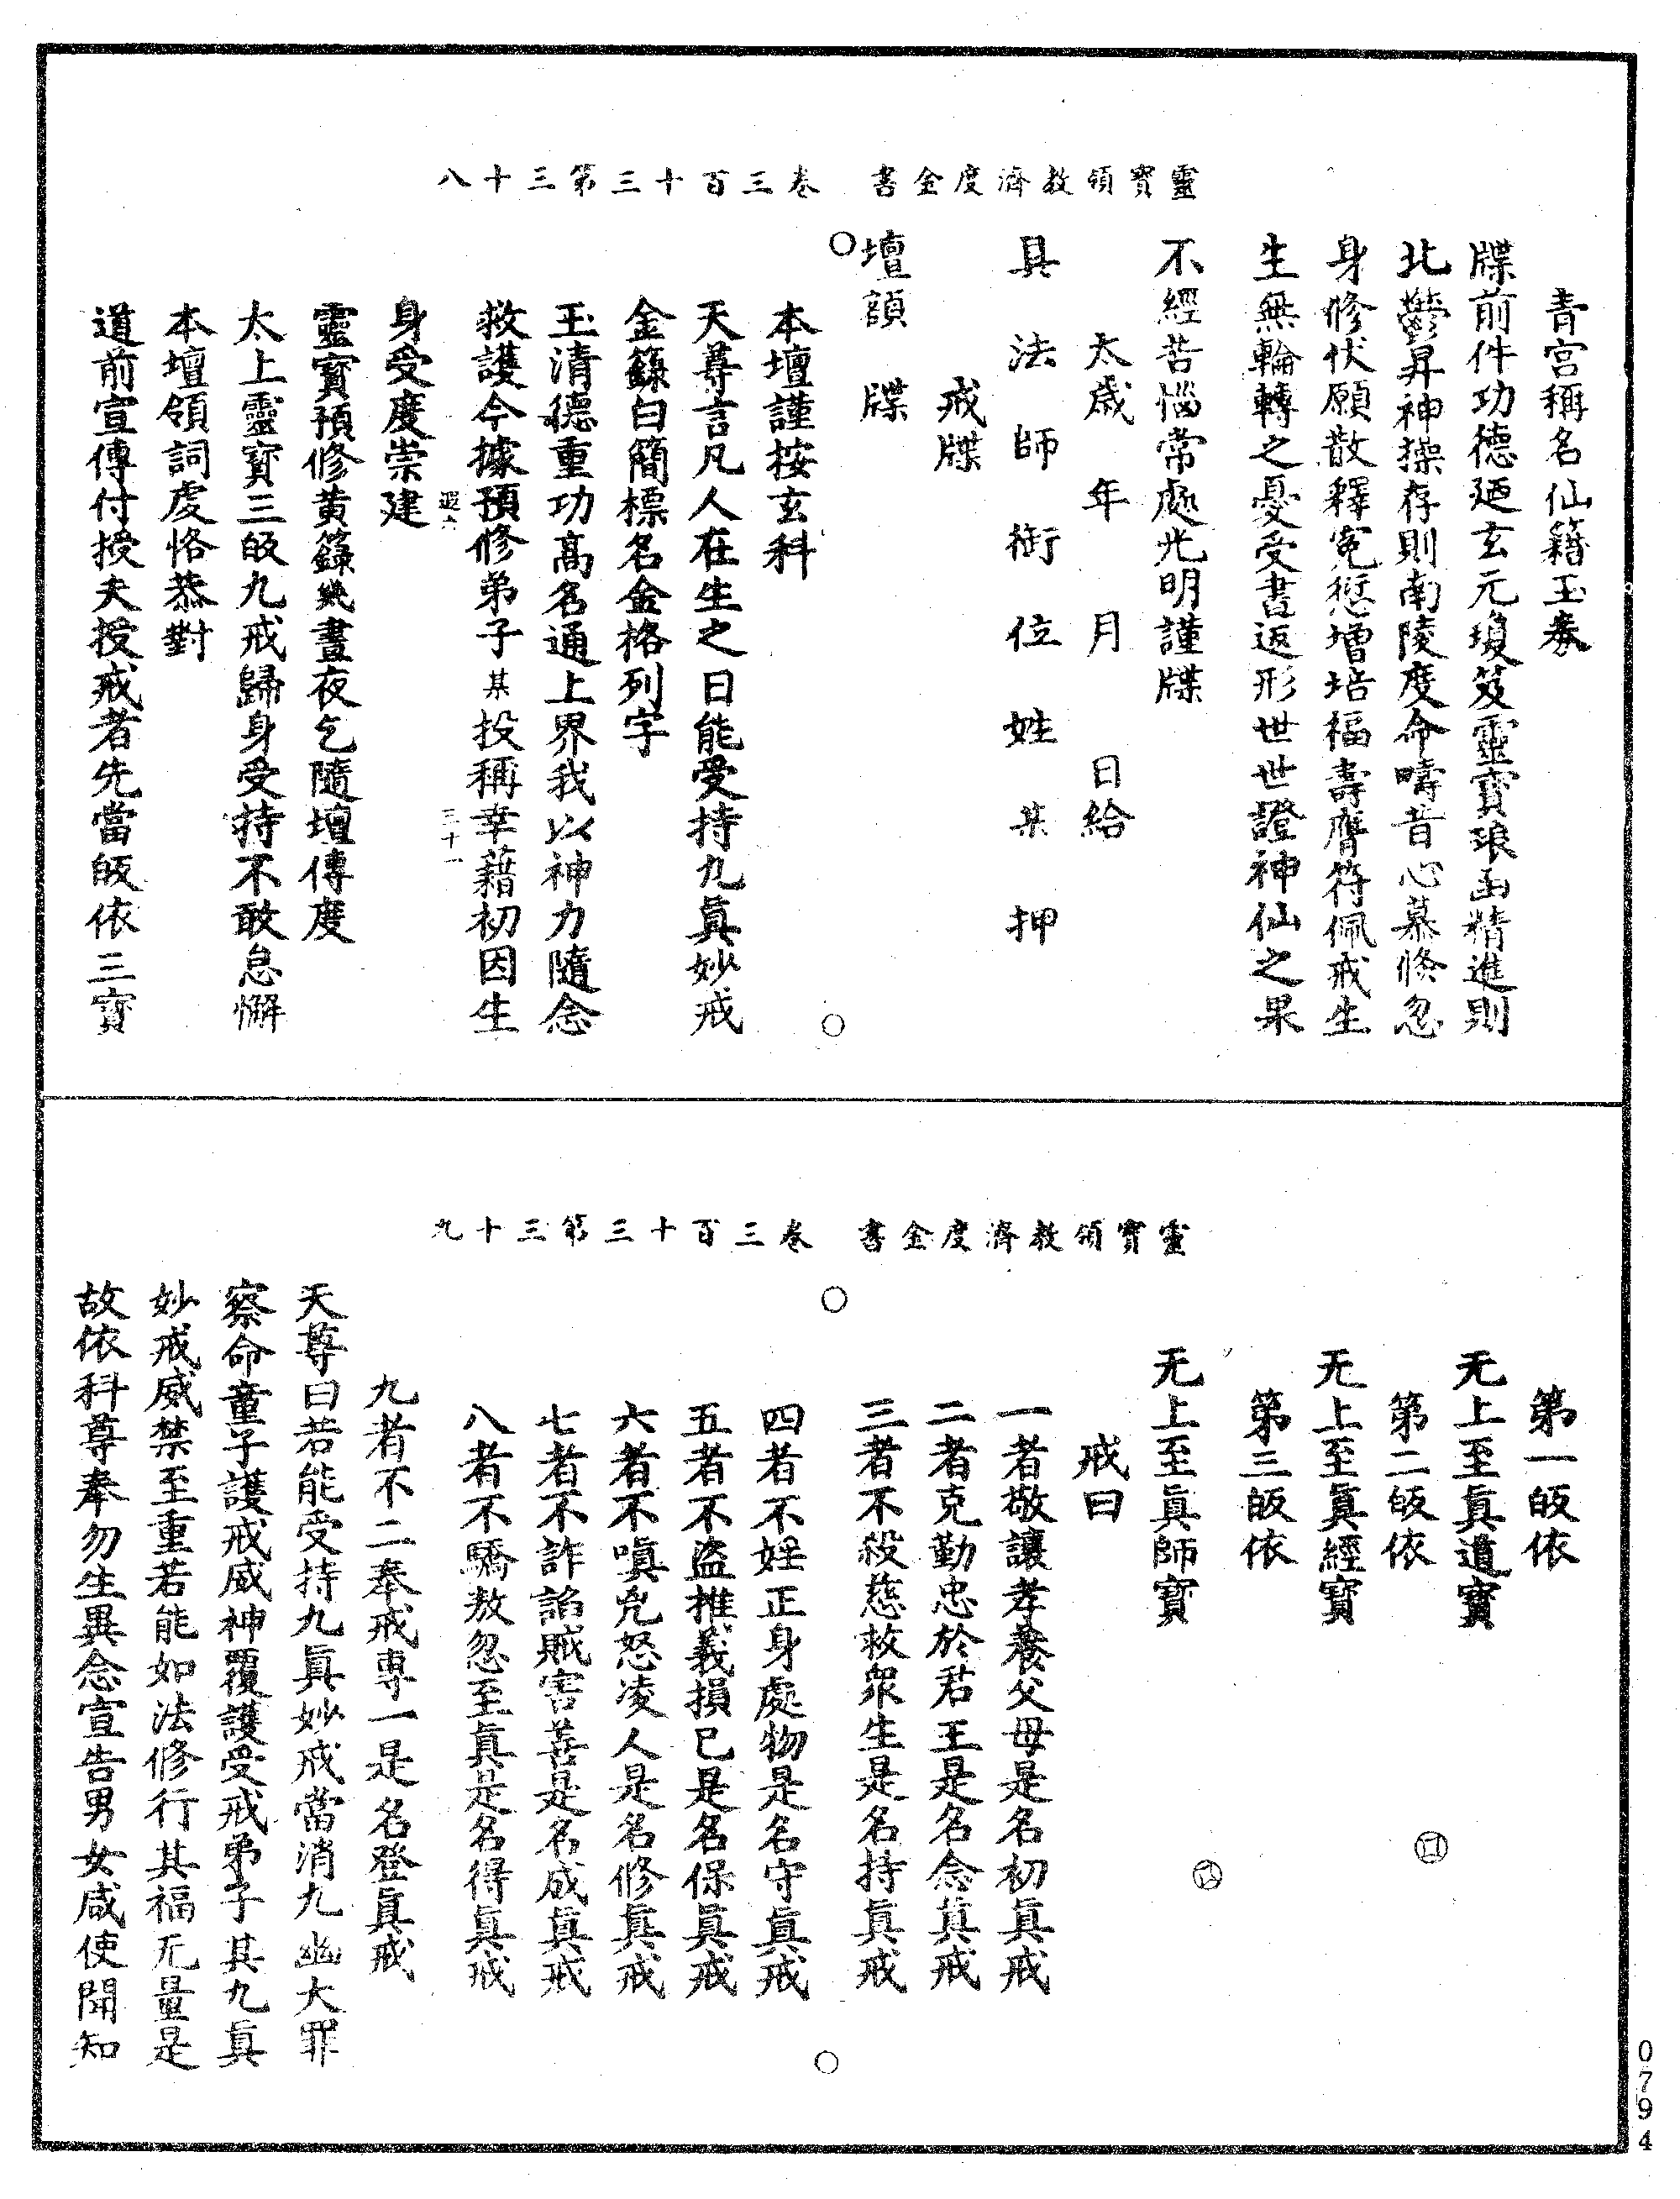 靈寶領教濟度金書　卷三百十三第三十八
青宮稱名仙籍玉券
牒前件功德廼玄元瓊笈靈寶琅函精進則
北鬱昇神操存則南陵度命疇昔心慕修忽
身修伏願散釋冤愆增培福壽膺符佩戒生
生無輪轉之憂受書返形世世證神仙之果
不經苦惱常處光明謹牒
太歲　年　月　日給
具法師銜位姓某押
戒牒
壇額　牒
本壇謹按玄科
天尊言凡人在生之日能受持九眞妙戒
金籙白簡標名金格列字
玉清德重功高名通上界我以神力隨念
救護今據預修弟子某投稱幸藉初因生
三十一
身受度崇建
靈寶預修黃籙幾晝夜乞隨壇傳度
太上靈寶三皈九戒歸身受持不敢怠懈
本壇領詞虔恪恭對
道前宣傳付授夫授戒者先當皈依三寶
靈寶領教濟度金書　卷三百十三第三十九
第一皈依
无上至眞道寶
第二皈依
无上至眞經寶
第三皈依
无上至眞師寶
戒曰
一者敬讓孝養父母是名初眞戒
二者克勤忠於君王是名念眞戒
三者不殺慈救衆生是名持眞戒
四者不婬正身處物是名守眞戒
五者不盜推義損己是名保眞戒
六者不嗔兇怒凌人是名修眞戒
七者不詐諂賊害善是名成眞戒
八者不驕敖忽至眞是名得眞戒
九者不二奉戒專一是名登眞戒
天尊曰若能受持九眞妙戒當消九幽大罪
察命童子護戒威神覆護受戒弟子其九眞
妙戒威禁至重若能如法修行其福无量是
故依科尊奉勿生異念宣告男女咸使聞知
0794